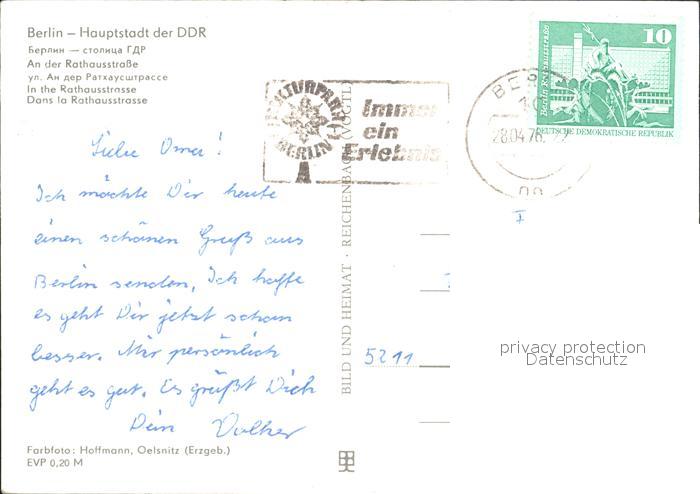 Berlin – Hauptstadt der DDR
Берлин — столица ГДР
An der Rathausstraße
ул. Ан дер Ратхаусштрассе
In the Rathausstrasse
Dans la Rathausstrasse
Liebe Oma!
Ich möchte Dir heute
einen schönen Gruß aus
Berlin senden. Ich hoffe
es geht Dir jetzt schon
besser. Mir persönlich
geht es gut. Es grüßt Dich
Dein Volker
Farbfoto: Hoffmann, Oelsnitz (Erzgeb.)
EVP 0,20 M
KULTURPARK
BERLIN
Immer
ein
Erlebnis
BILD UND HEIMAT · REICHENBACH (VOGTL)
28.04.76
10
Berlin, Rathausstraße
DEUTSCHE DEMOKRATISCHE REPUBLIK
I
5211
privacy protection
Datenschutz